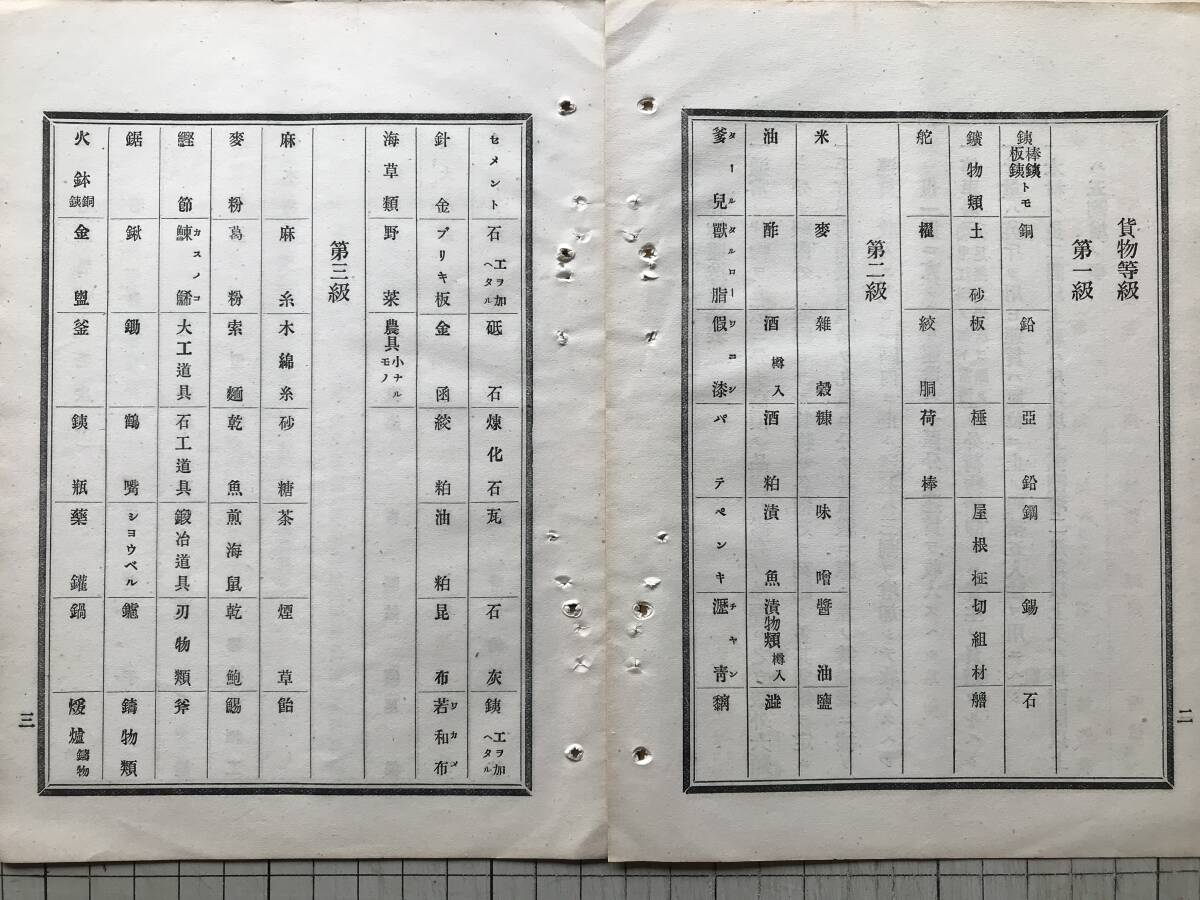 貨物等級
第一級
銕棒銕板銕トモ　銅　鉛　亞鉛　鋼　錫　石
鑛物類　土砂　板　極　屋根柾　切組材　艪
舵　櫂　絞胴　荷棒
第二級
米　麥　雜穀　糠　味噌　醬油　鹽
油　酢　酒樽入　酒粕　漬魚　漬物類樽入　澁
爹兒タール　獸脂タルロー　假漆ワコシ　パテ　ペンキ　瀝青チャン　黐
二
セメント　石工ヲ加ヘタル　砥石　煉化石　瓦　石灰　銕工ヲ加ヘタル
針金　ブリキ板　金函　絞粕　油粕　昆布　若和布ワカメ
海草類　野菜　農具小ナルモノ
第三級
麻　麻糸　木綿糸　砂糖　茶　煙草　飴
麥粉　葛粉　索麵　乾魚　煎海鼠　乾鮑　餳
鰹節　鰊鯑カズノコ　大工道具　石工道具　鍛冶道具　刃物類　斧
鋸　鍬　鋤　鶴嘴　シヨウベル　鑢　鑄物類
火鉢銅銕　金盥　釜　銕瓶　藥鑵　鍋　煖爐鑄物
三